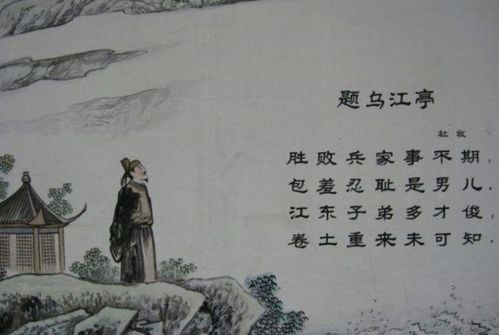 题乌江亭
杜牧
胜败兵家事不期，
包羞忍耻是男儿。
江东子弟多才俊，
卷土重来未可知。